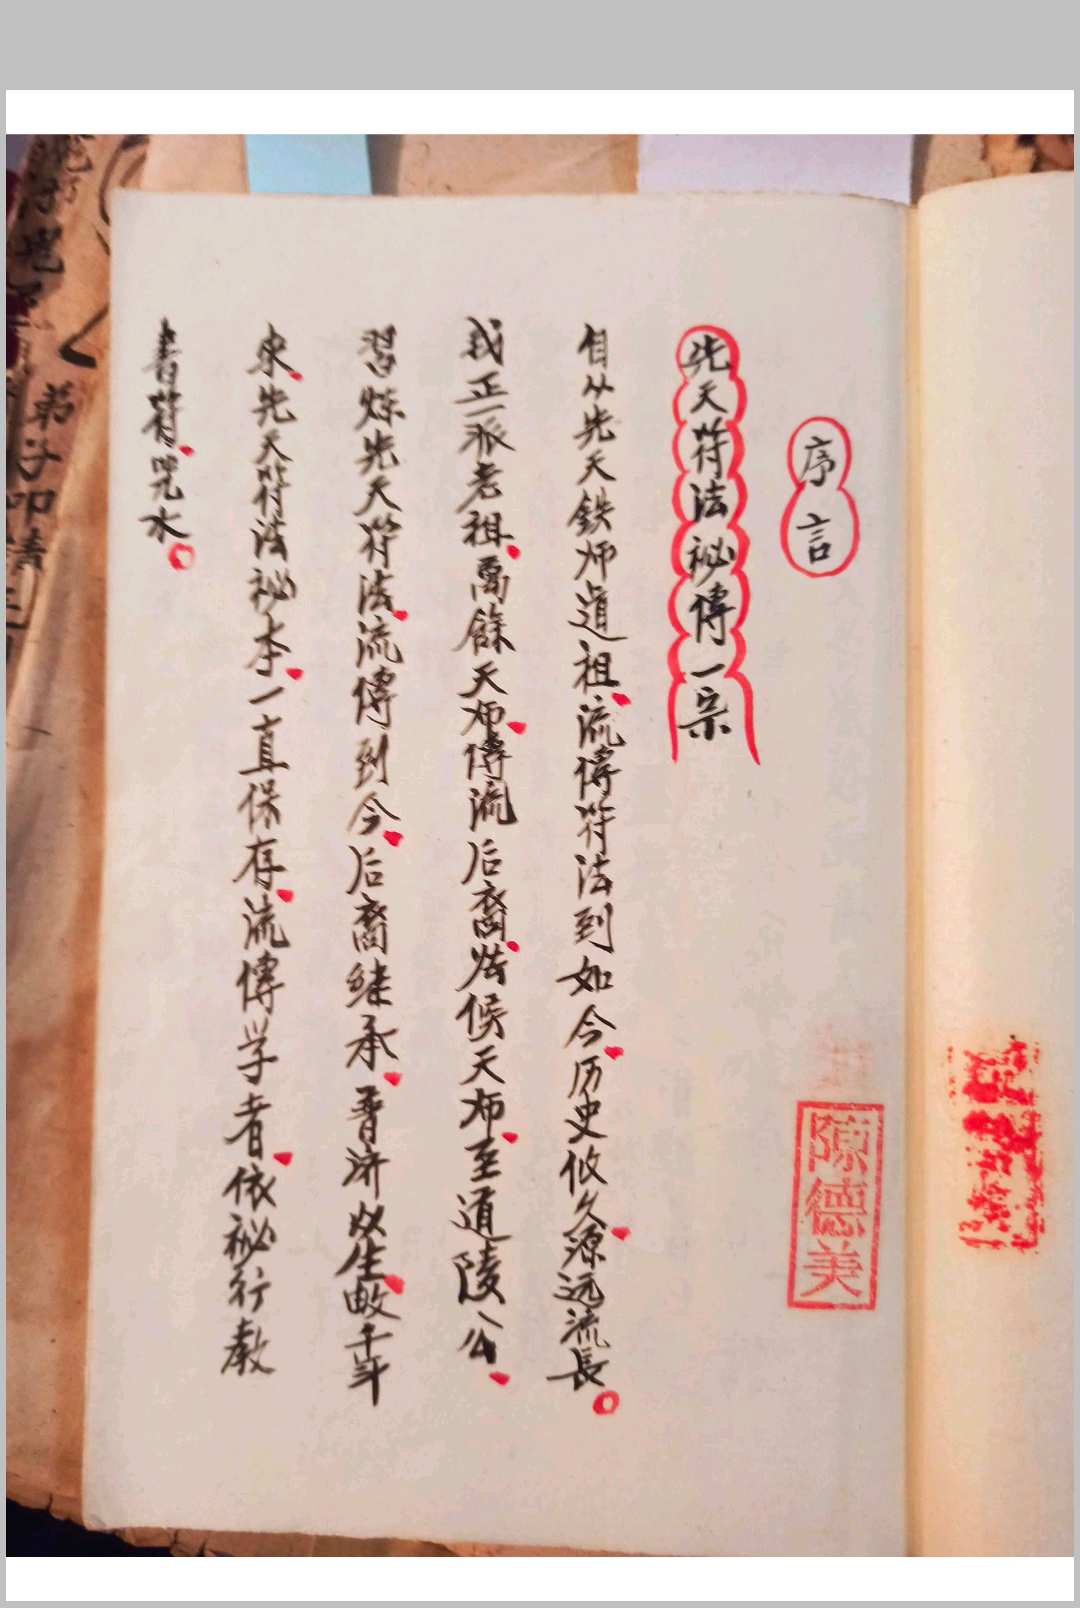 序言
先天符法祕傳一宗
自从先天鉄师道祖流傳符法到如今历史悠久源远流長
我正一派老祖禹餘天师傳流后裔 候天师至道陵公
習炼先天符法流傳到今后裔継承普济众生数千年
来先天符法祕本一直保存流傳学者依祕行教
書符咒水
陳德美
弟子叩請